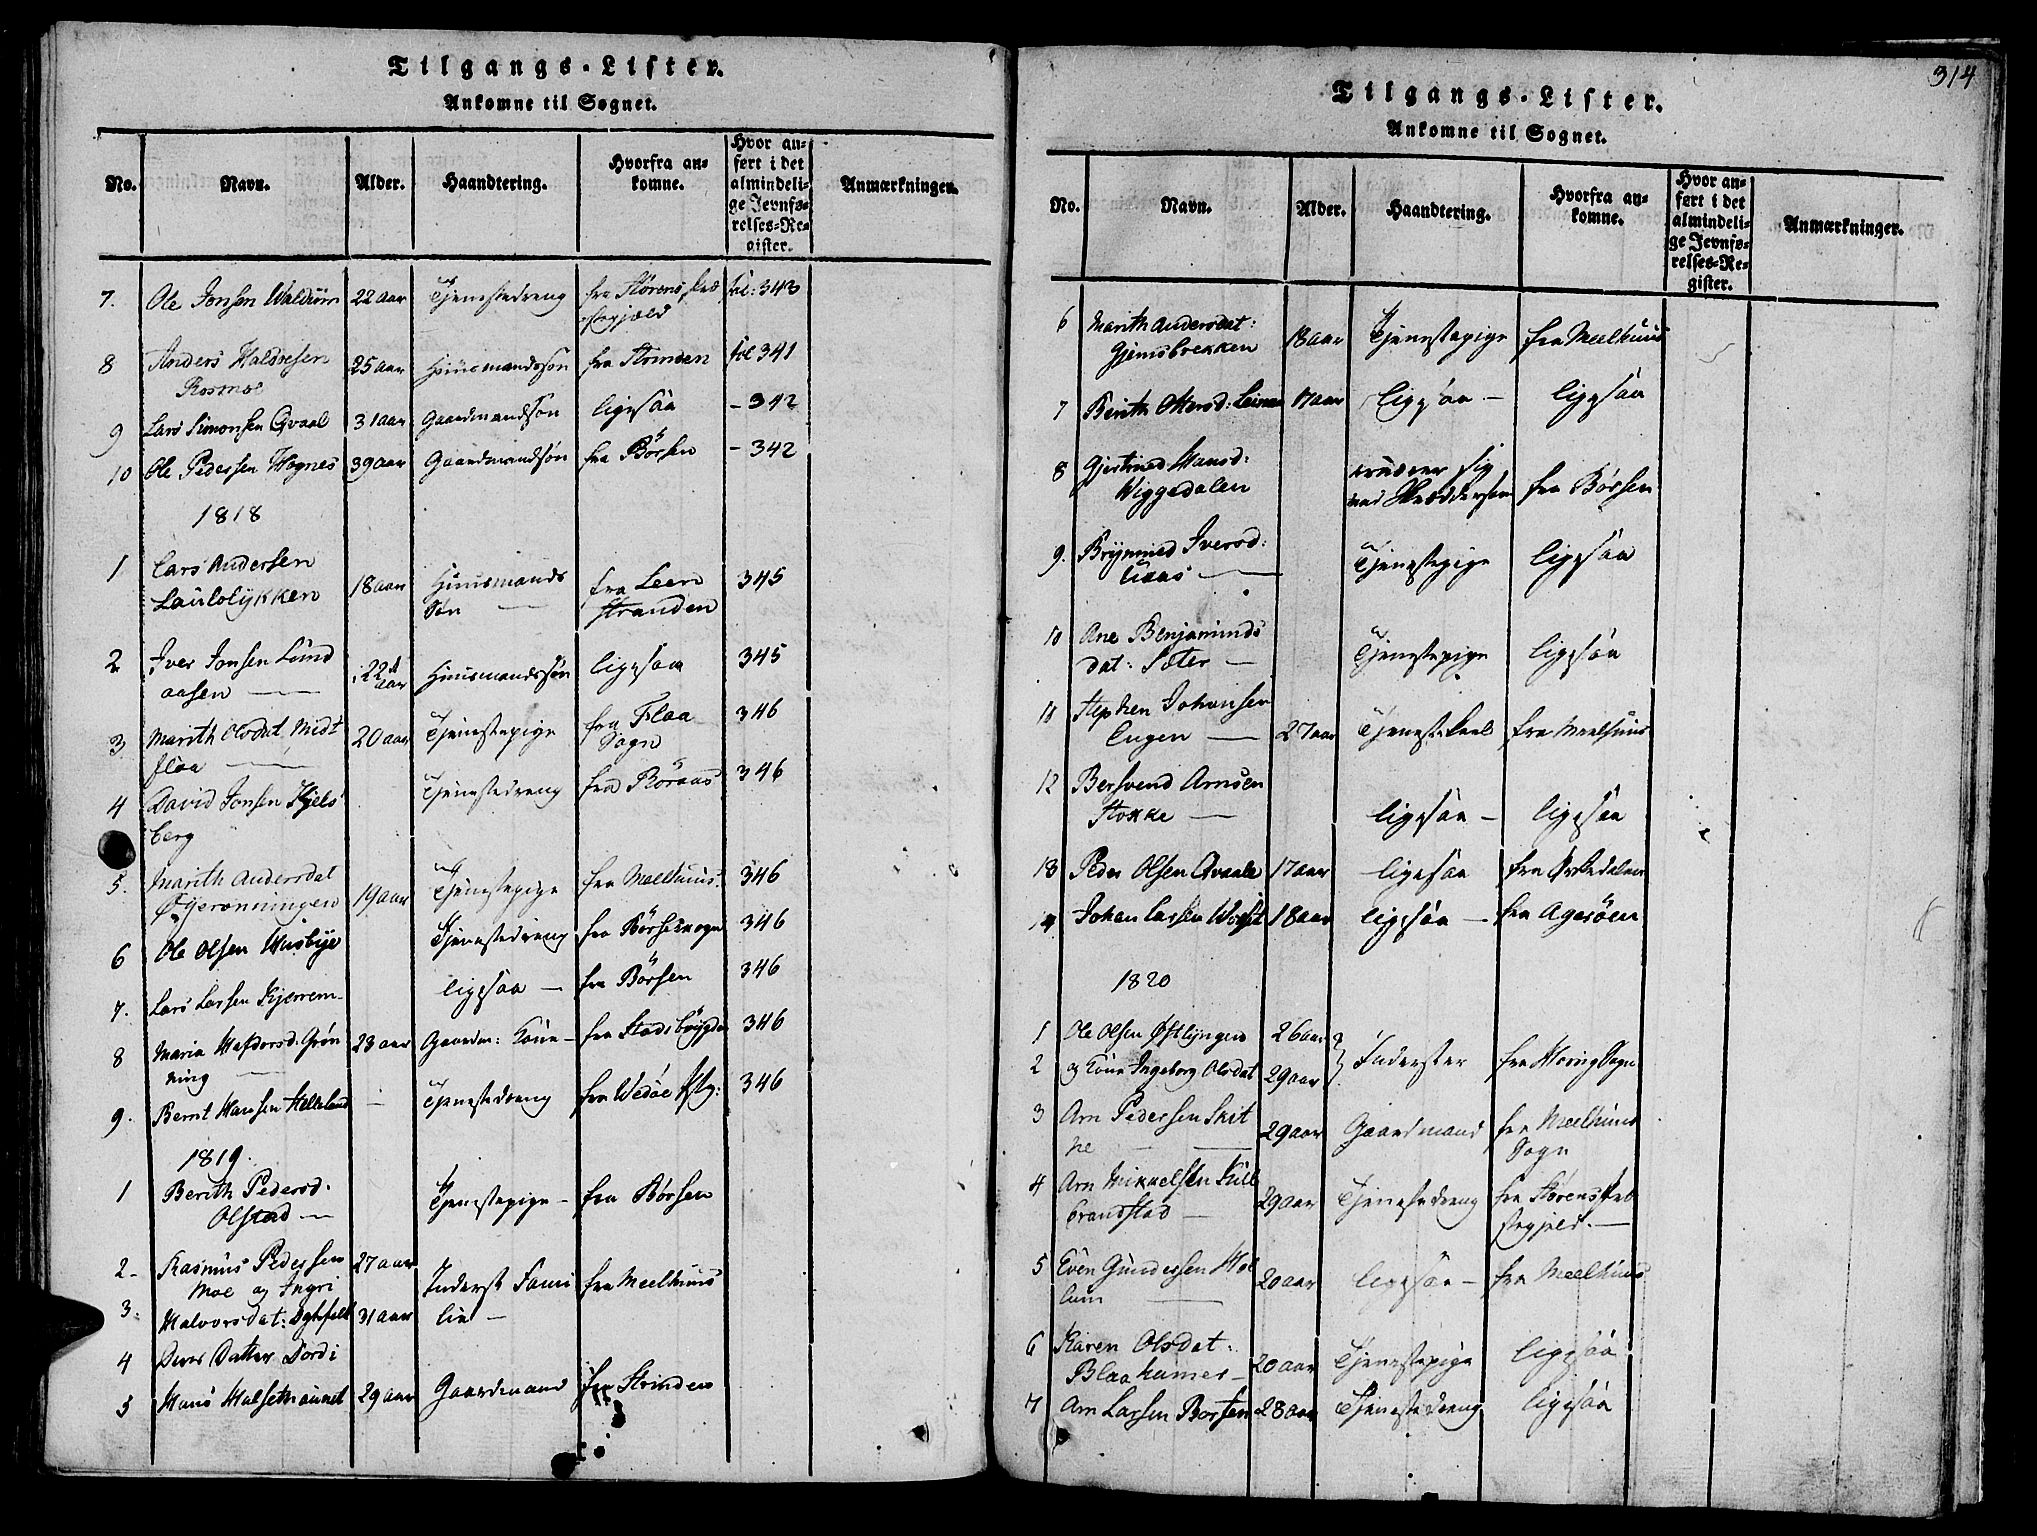 Tilgangs-Lister.
Ankomne til Sognet.
No. Navn. Alder. Haandtering. Hvorfra ankomne. Hvor anført i det almindelige Jevnførelses-Register. Anmærkninger.
7. Ole Jonsen 22 aar Tjenestedreng fra Størens Præ fol: 343
stegjæld
8 Anders Haldosen 25 aar Huusmandssøn fra Strinden fol 341
9 Lars Simonsen Qvaal 31 aar Gaardmandsøn ligesaa - 342
10 Ole Pedersen Hognes 39 aar Gaardmandsøn fra Börsen - 342
1818
1 Lars Andersen
Laulolykken 18 aar Huusmands søn fra Leen stranden 345
2 Iver Jonsen Lund
aasen 22 aar Huusmandssøn ligesaa 345
3 Marith Olsdat Midt
flaa 20 aar Tjenestepige fra Flaa Sogn 346
4 David Jonsen Kjels
berg Tjenestedreng fra Röraas 346
5. Marith Andersdat
19 aar Tjenestepige fra Meelhuus. 346
6 Ole Olsen Husbye Tjenestedreng fra Börse Sogn 346
7. Lars Larsen Kjerrem ligesaa fra Börsen 346
8 Maria Grön
ning 23 aar Gaardm: Kone fra Stadsböygden 346
9. Bernt Hansen Tjenestedreng fra Wedöe Pstg: 346
1819.
1 Berith Pedersd.
Olstad Tjenestepige fra Börsen
2 Rasmus Pedersen 27 aar
Moe og Ingri Inderst Fami fra Meelhuus
3. Halvorsdat: 31 aar lie
4 Deres Datter Dordi
5 Hans Halsethaunet 29 aar Gaardmand fra Strinden
314
Tilgangs-Lister.
Ankomne til Sognet.
No. Navn. Alder. Haandtering. Hvorfra ankomne. Hvor anført i det almindelige Jevnførelses-Register. Anmærkninger.
6 Marith Andersdat:
Gjemsbrekken 18 aar Tjenestepige fra Meelhuus
7 Berith Olersd: 17 aar ligesaa ligesaa
8 Gjertrued Hansd:
Wiggedalen ernærer sig fra Börsen
9. Iversd:
Tjenestepige ligesaa
10 Ane Benjaminds
dat: Sæter Tjenestepige ligesaa
11 Stephen Johansen
Engen 27 aar Tjenestekarl fra Meelhuus
12 Bersvend Arnsen
Stokke ligesaa ligesaa
13 Peder Olsen Qvaale 17 aar ligesaa fra Orkedalen
14 Johan Larsen 18 aar ligesaa fra Agesöen
1820
1 Ole Olsen Östlyngen 26 aar
2 og Kone Ingeborg Olsdat 29 aar Inderster fra Horrig Sogn
3 Arn Pedersen Skit
ne 29 aar Gaardmand fra Meelhuus Sogn
4 Arn Mikkelsen Kull
brandstad 29 aar Tjenestedreng fra Størens Præ
stegjeld.
5 Even Gundersen Hol
lum 20 aar ligesaa fra Meelhuus
6 Karen Olsdat:
Blaakamer 20 aar Tjenestepige ligesaa
7 Arn Larsen Borten 28 aar Tjenestedreng ligesaa